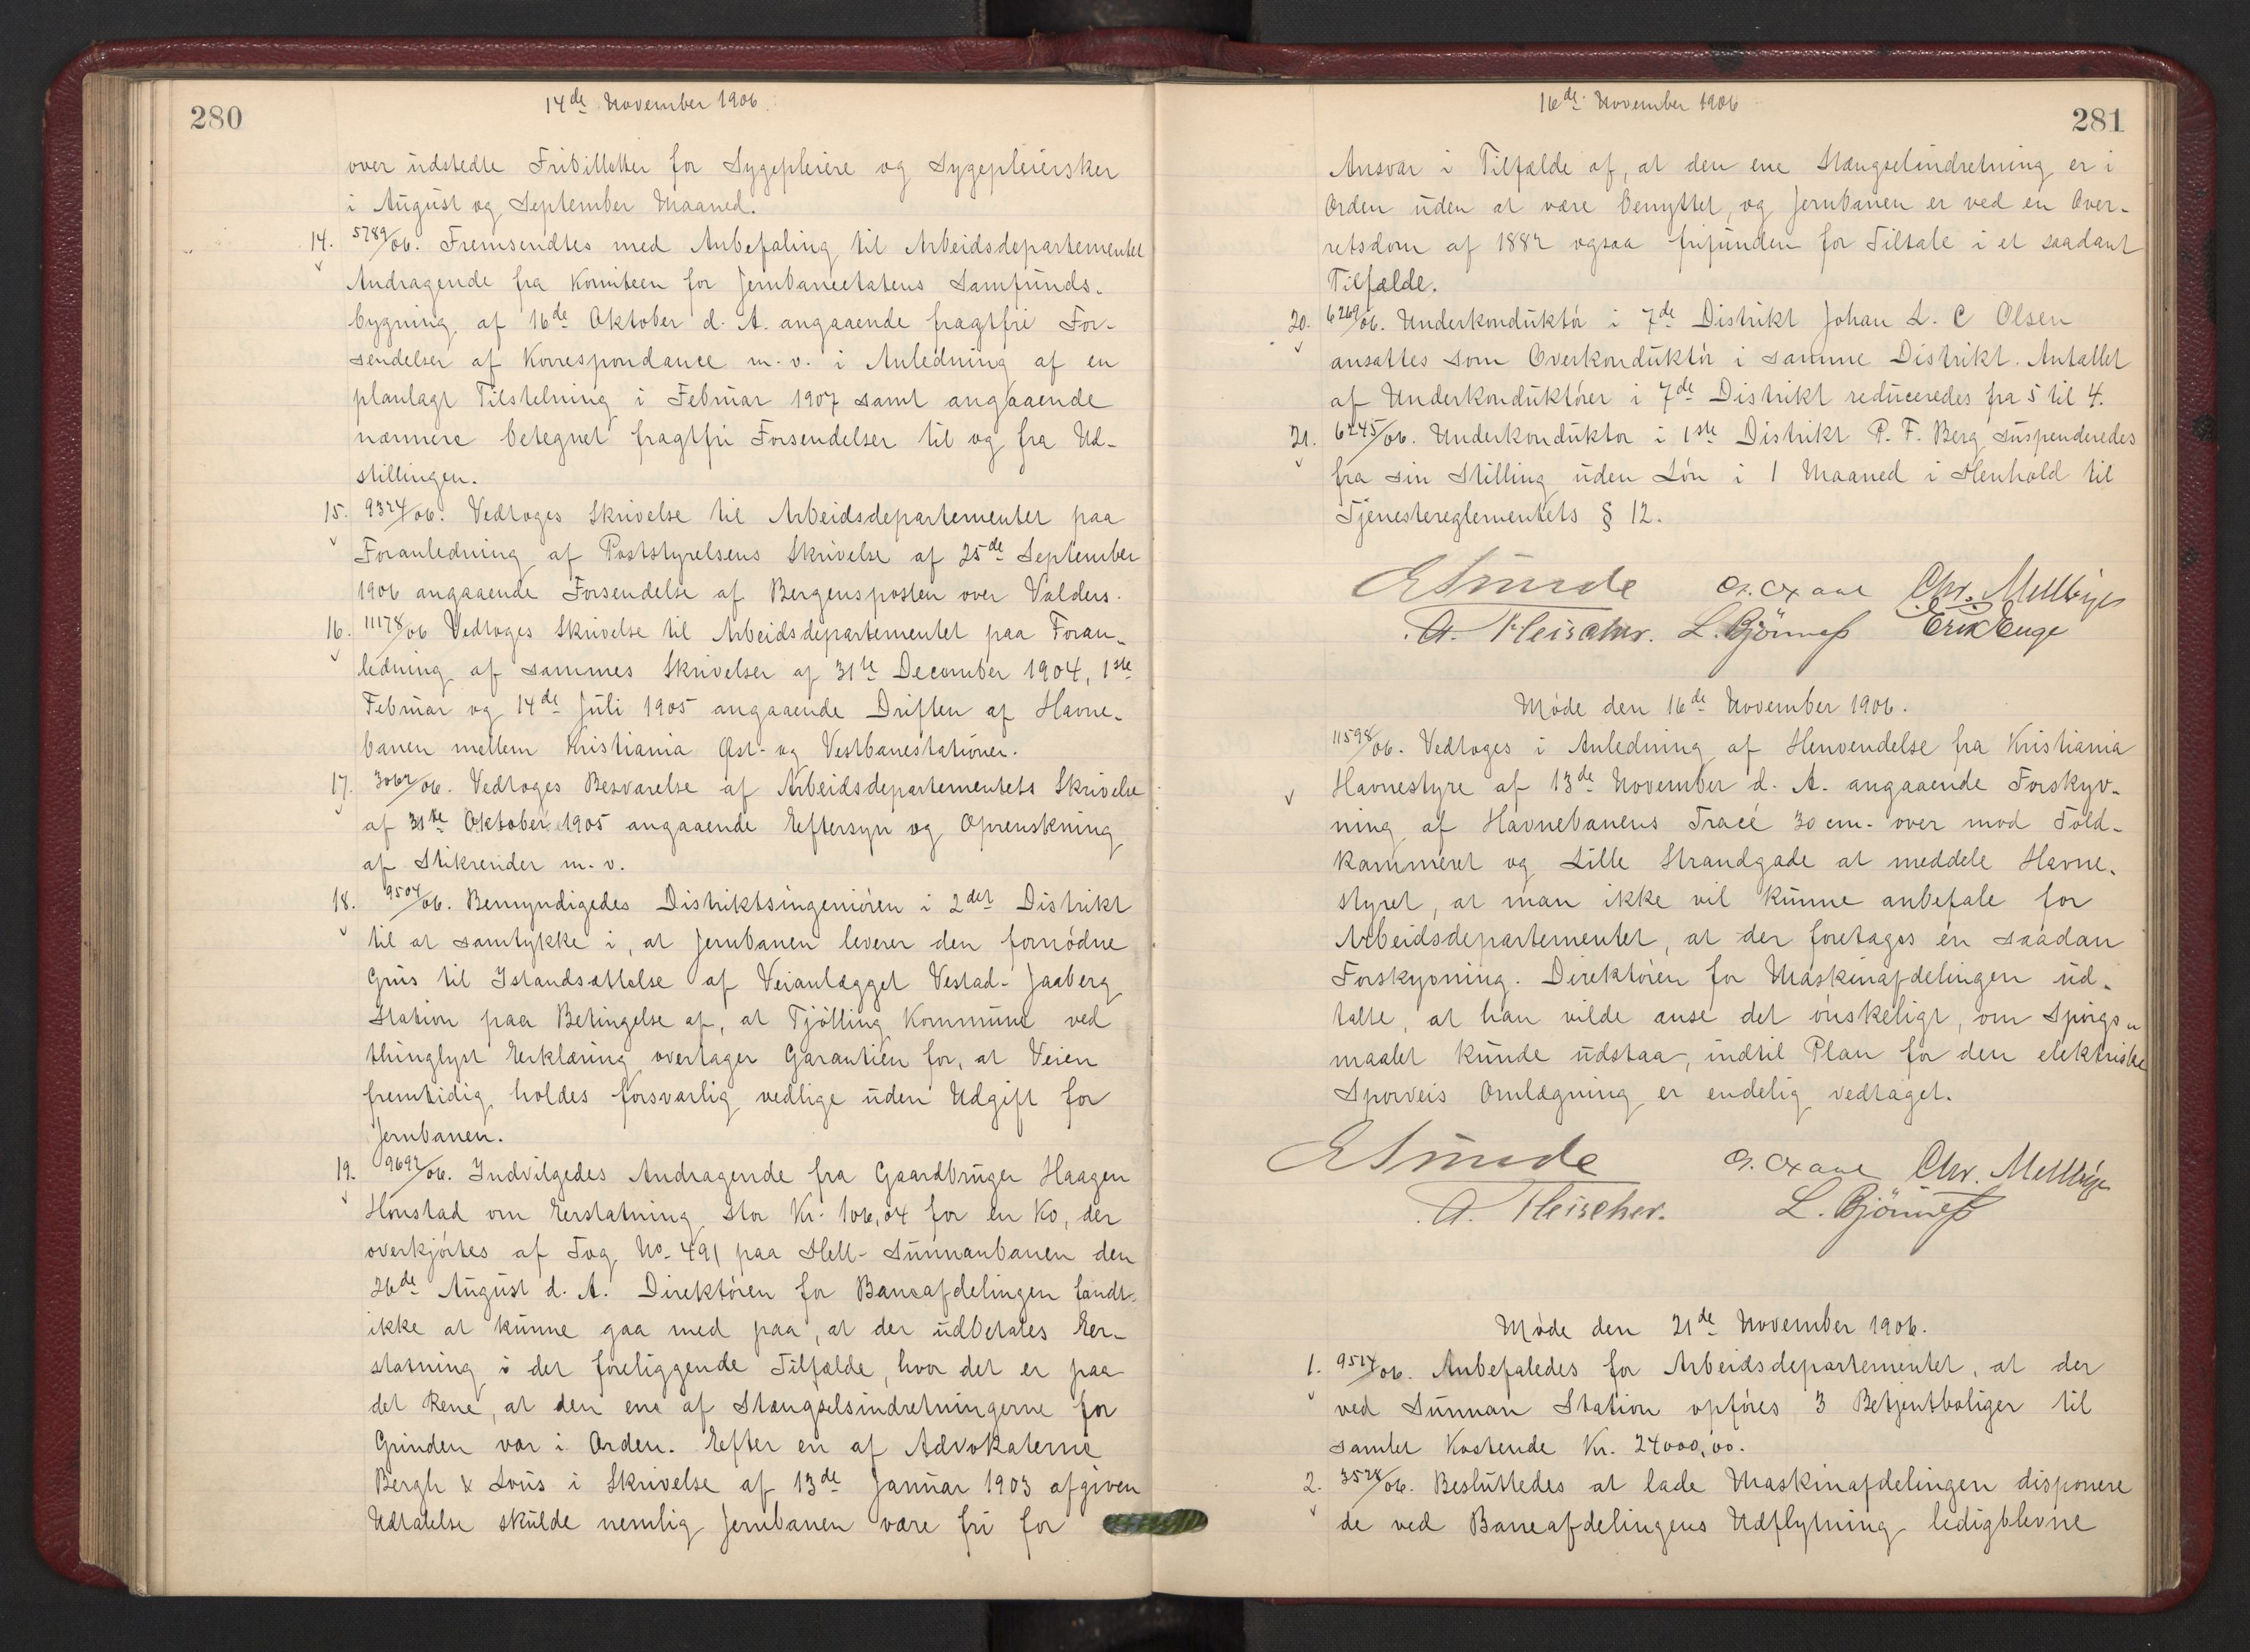 280
14de November 1906.
over udstedte Fribilletter for Sygepleiere og Sygepleiersker
i August og September Maaned.
14. 5789/06. Fremsendtes med Anbefaling til Arbeidsdepartementet
Andragende fra Komiteen for Jernbaneetatens Samfunds-
bygning af 16de Oktober d. A. angaaende fragtfri For-
sendelser af Korrespondance m. v. i Anledning af en
planlagt Tilstelning i Februar 1907 samt angaaende
nærmere betegnet fragtfri Forsendelser til og fra Ud-
stillingen.
15. 9324/06. Vedtoges Skrivelse til Arbeidsdepartementet paa
Foranledning af Poststyrelsens Skrivelse af 25de September
1906 angaaende Forsendelse af Bergensposten over Valders.
16. 11178/06 Vedtoges Skrivelse til Arbeidsdepartementet paa Foran-
ledning af sammes Skrivelser af 31te December 1904, 1ste
Februar og 14de Juli 1905 angaaende Driften af Havne-
banen mellem Kristiania Øst- og Vestbanestationer.
17. 3062/06. Vedtoges Besvarelse af Arbeidsdepartementets Skrivelse
af 31te Oktober 1905 angaaende Eftersyn og Oprenskning
af Stikrender m. v.
18. 9504/06. Bemyndigedes Distriktsingeniøren i 2det Distrikt
til at samtykke i, at Jernbanen leverer den fornødne
Grus til Istandsættelse af Veianlægget Vestad- Jaaberg
Station paa Betingelse af, at Tjølling Kommune ved
thinglyst Erklæring overtager Garantien for, at Veien
fremtidig holdes forsvarlig vedlige uden Udgift for
Jernbanen.
19. 9692/06. Indvilgedes Andragende fra Gaardbruger Haagen
Honstad om Erstatning stor Kr. 106,04 for en Ko, der
overkjørtes af Tog No. 491 paa Hell- Sunnanbanen den
26de August d. A. Direktøren for Baneafdelingen fandt
ikke at kunne gaa med paa, at der udbetales Er-
statning i det foreliggende Tilfælde, hvor det er paa
det Rene, at den ene af Stængselsindretningerne for
Grinden var i Orden. Efter en af Advokaterne
Bergh & Lous i Skrivelse af 13de Januar 1903 afgiven
Udtalelse skulde nemlig Jernbanen være fri for
281
16de November 1906
Ansvar i Tilfælde af, at den ene Stængselindretning er i
Orden uden at være benyttet, og Jernbanen er ved en Over-
retsdom af 1882 ogsaa frifunden for Tiltale i et saadant
Tilfælde.
20. 6269/06. Underkonduktør i 7de Distrikt Johan L. C Olsen
ansattes som Overkonduktør i samme Distrikt. Antallet
af Underkonduktører i 7de Distrikt reduceredes fra 5 til 4.
21. 6245/06. Underkonduktør i 1ste Distrikt P. F. Berg suspenderedes
fra sin Stilling uden Løn i 1 Maaned i Henhold til
Tjenestereglementets § 12.
E Sunde Chr. Mellbye
A. Fleischer. L. Bjønness Erik Enge
Møde den 16de November 1906.
11598/06. Vedtoges i Anledning af Henvendelse fra Kristiania
Havnestyre af 13de November d. A. angaaende Forskyv-
ning af Havnebanens Tracé 30 cm. over mod Told-
kammeret og Lille Strandgade at meddele Havne-
styret, at man ikke vil kunne anbefale for
Arbeidsdepartementet, at der foretages en saadan
Forskyvning. Direktøren for Maskinafdelingen ud-
talte, at han vilde anse det ønskeligt, om Spørgs-
maalet kunde udstaa, indtil Plan for den elektriske
Sporveis Omlægning er endelig vedtaget.
E Sunde Chr. Mellbye
A. Fleischer. L. Bjønness
Møde den 21de November 1906.
1. 9524/06. Anbefaledes for Arbeidsdepartementet, at der
ved Sunnan Station opføres 3 Betjentboliger til
samlet Kostende Kr. 24000,00.
2. 3528/06. Besluttedes at lade Maskinafdelingen disponere
de ved Baneafdelingens Udflytning ledigblevne